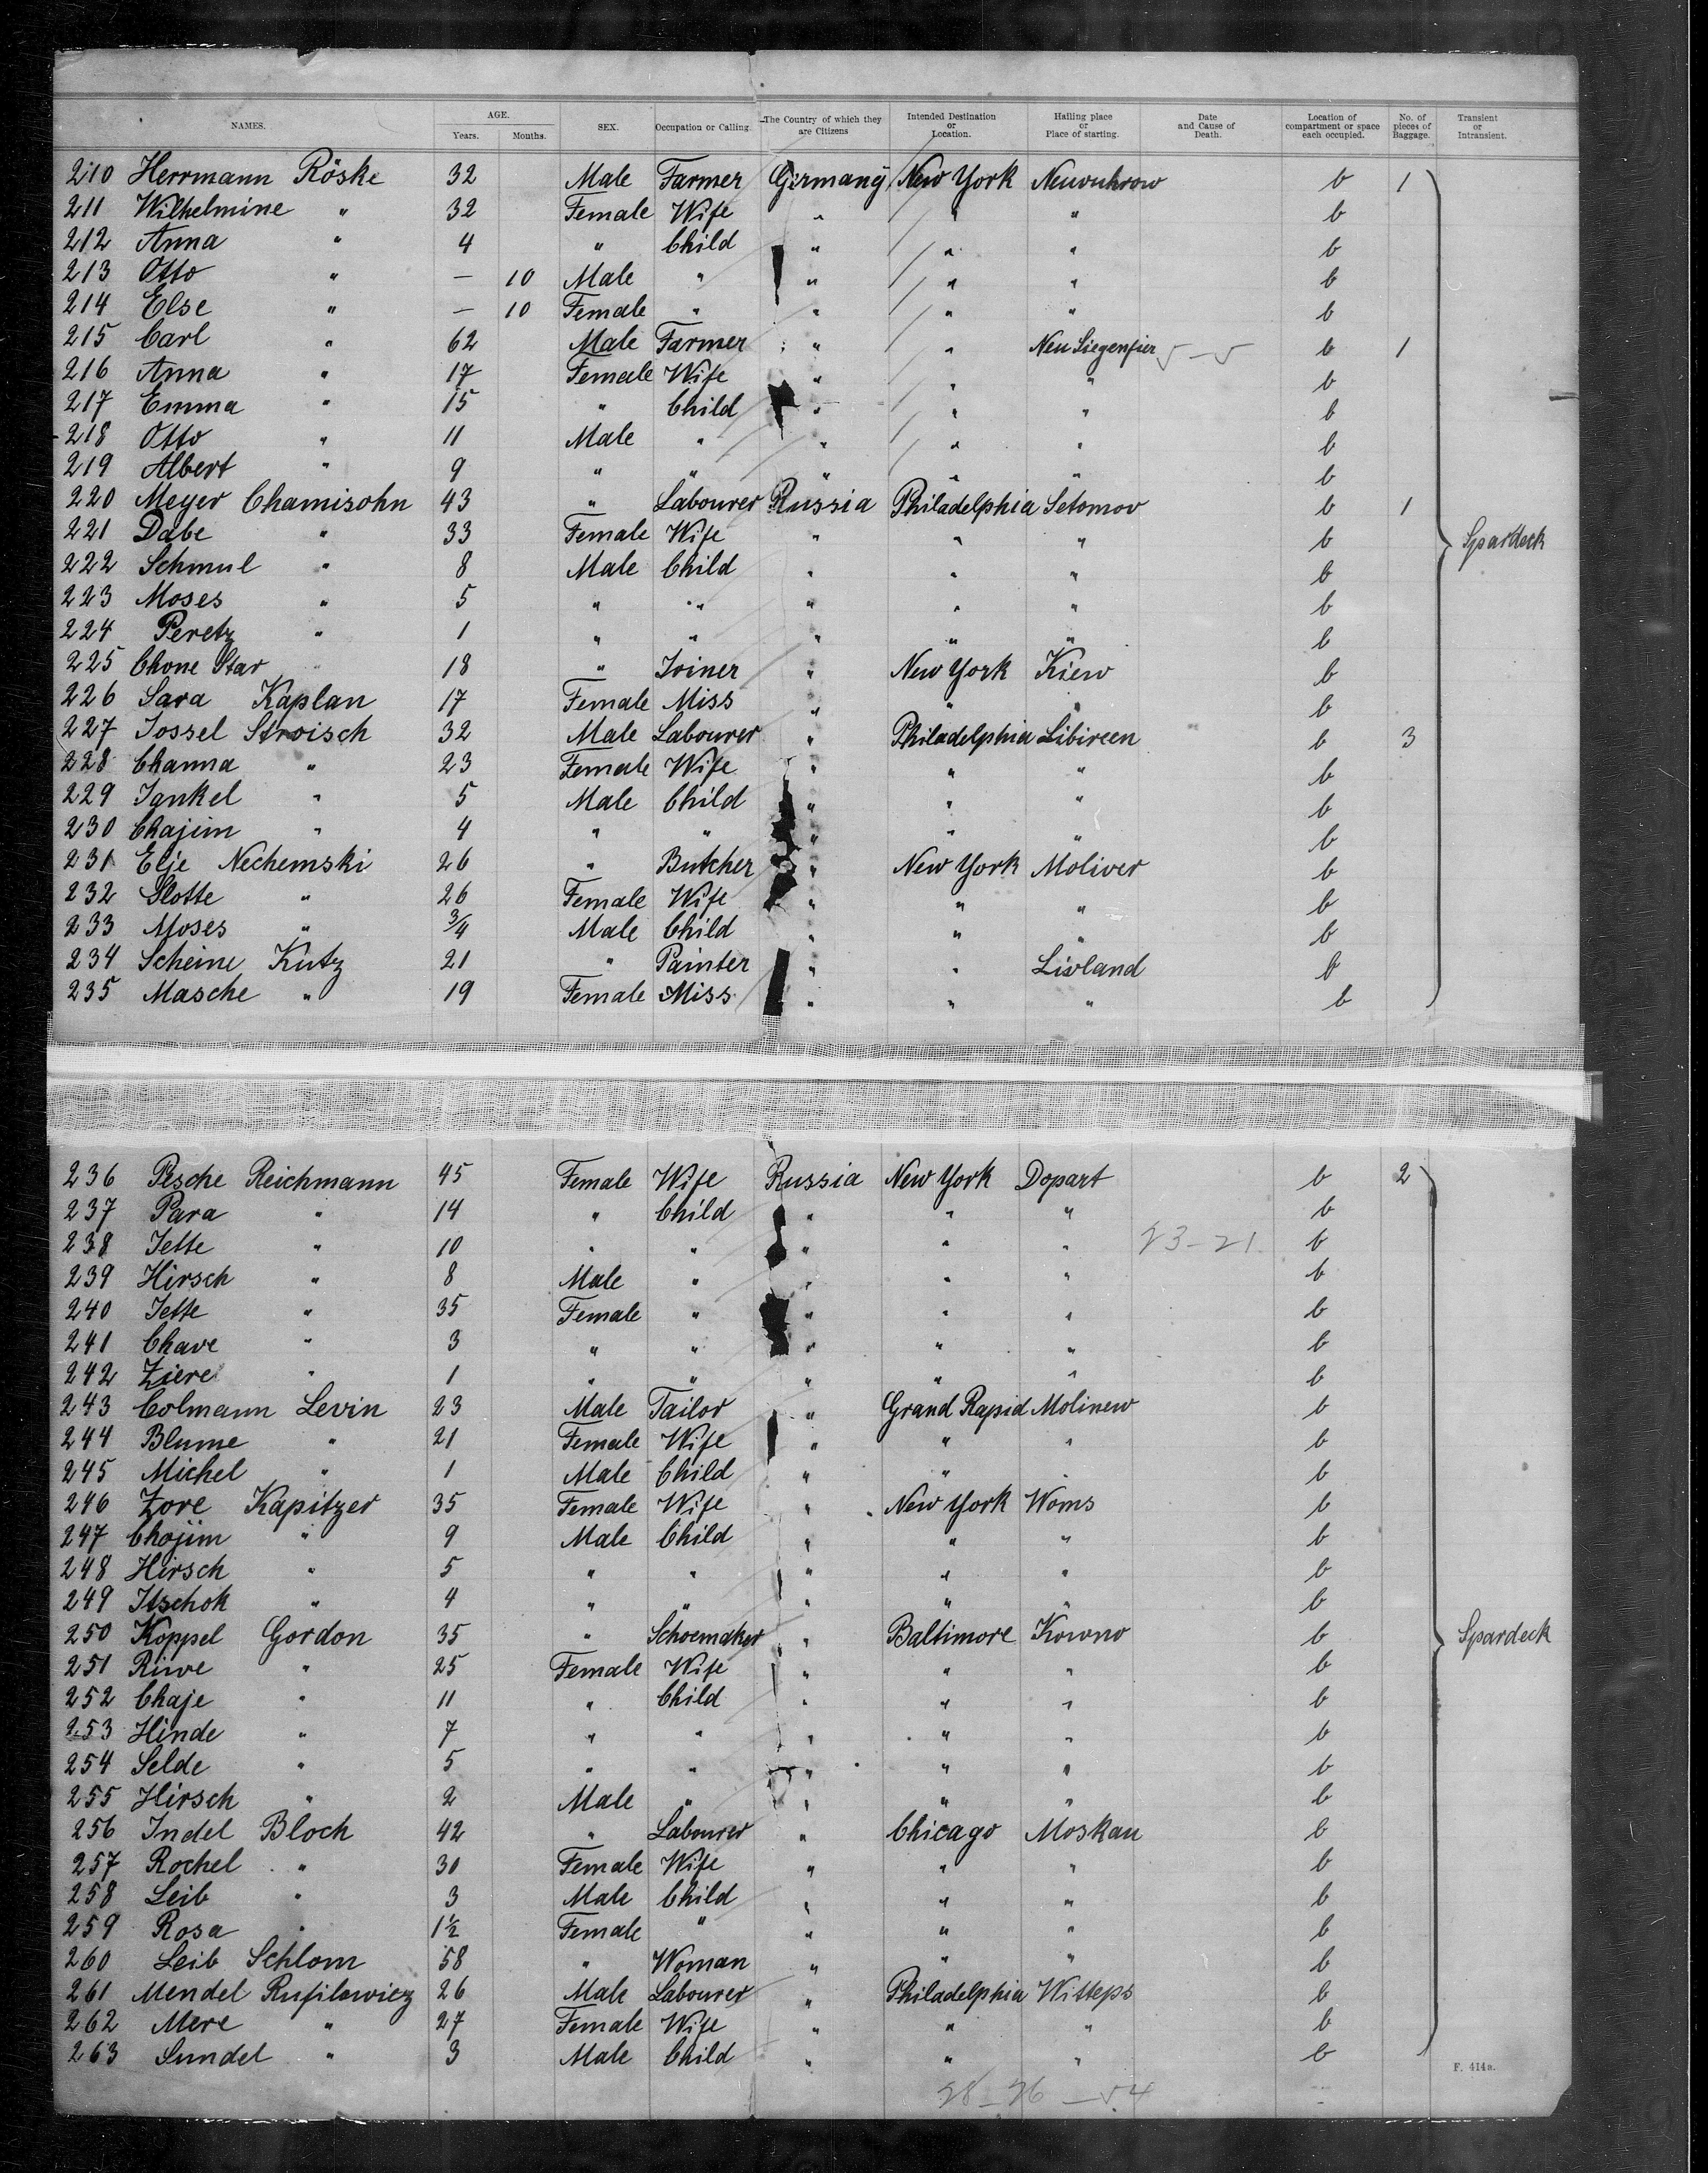 NAMES. AGE. Years. Months. SEX. Occupation or Calling. The Country of which they are Citizens Intended Destination or Location. Hailing place or Place of starting. Date and Cause of Death. Location of compartment or space each occupied. No. of pieces of Baggage. Transient or Intransient.
210 Herrmann Röske 32 Male Farmer Germany New York Neuwuhrow b 1
211 Wilhelmine " 32 Female Wife " " " b
212 Anna " 4 " Child " " " b
213 Otto " — 10 Male " " " " b
214 Else " — 10 Female " " " " b
215 Carl " 62 Male Farmer " " Neu Liegenfier 5 – 5 b 1
216 Anna " 17 Female Wife " " " b
217 Emma " 15 " Child " " " b
218 Otto " 11 Male " " " " b
219 Albert " 9 " " " " " b
220 Meyer Chamisohn 43 " Labourer Russia Philadelphia Setomov b 1
221 Dabe " 33 Female Wife " " " b Spardeck
222 Schmul " 8 Male Child " " " b
223 Moses " 5 " " " " " b
224 Peretz " 1 " " " " " b
225 Chone Star 18 " Joiner " New York Kiew b
226 Sara Kaplan 17 Female Miss " " " b
227 Jossel Stroisch 32 Male Labourer " Philadelphia Libireen b 3
228 Channa " 23 Female Wife " " " b
229 Jankel " 5 Male Child " " " b
230 Chajim " 4 " " " " " b
231 Elje Nechemski 26 " Butcher " New York Moliver b
232 Slotte " 26 Female Wife " " " b
233 Moses " 3/4 Male Child " " " b
234 Scheine Kutz 21 " Painter " " Livland b
235 Masche " 19 Female Miss " " " b
236 Pesche Reichmann 45 Female Wife Russia New York Dopart b 2
237 Para " 14 " Child " " " b
238 Jette " 10 " " " " " 23–21 b
239 Hirsch " 8 Male " " " " b
240 Jette " 35 Female " " " " b
241 Chave " 3 " " " " " b
242 Ziere " 1 " " " " " b
243 Colmann Levin 23 Male Tailor " Grand Rapid Molinew b
244 Blume " 21 Female Wife " " " b
245 Michel " 1 Male Child " " " b
246 Zore Kapitzer 35 Female Wife " New York Woms b
247 Chojim " 9 Male Child " " " b
248 Hirsch " 5 " " " " " b
249 Itschok " 4 " " " " " b
250 Koppel Gordon 35 " Schoemaker " Baltimore Kowno b Spardeck
251 Riwe " 25 Female Wife " " " b
252 Chaje " 11 " Child " " " b
253 Hinde " 7 " " " " " b
254 Selde " 5 " " " " " b
255 Hirsch " 2 Male " " " " b
256 Indel Bloch 42 " Labourer " Chicago Moskau b
257 Rochel " 30 Female Wife " " " b
258 Leib " 3 Male Child " " " b
259 Rosa " 1½ Female " " " " b
260 Leib Schlom 58 " Woman " " " b
261 Mendel Rufilowicz 26 Male Labourer " Philadelphia Witteps b
262 Mere " 27 Female Wife " " " b
263 Sundel " 3 Male Child " " " b
F. 414a.
28–26–54